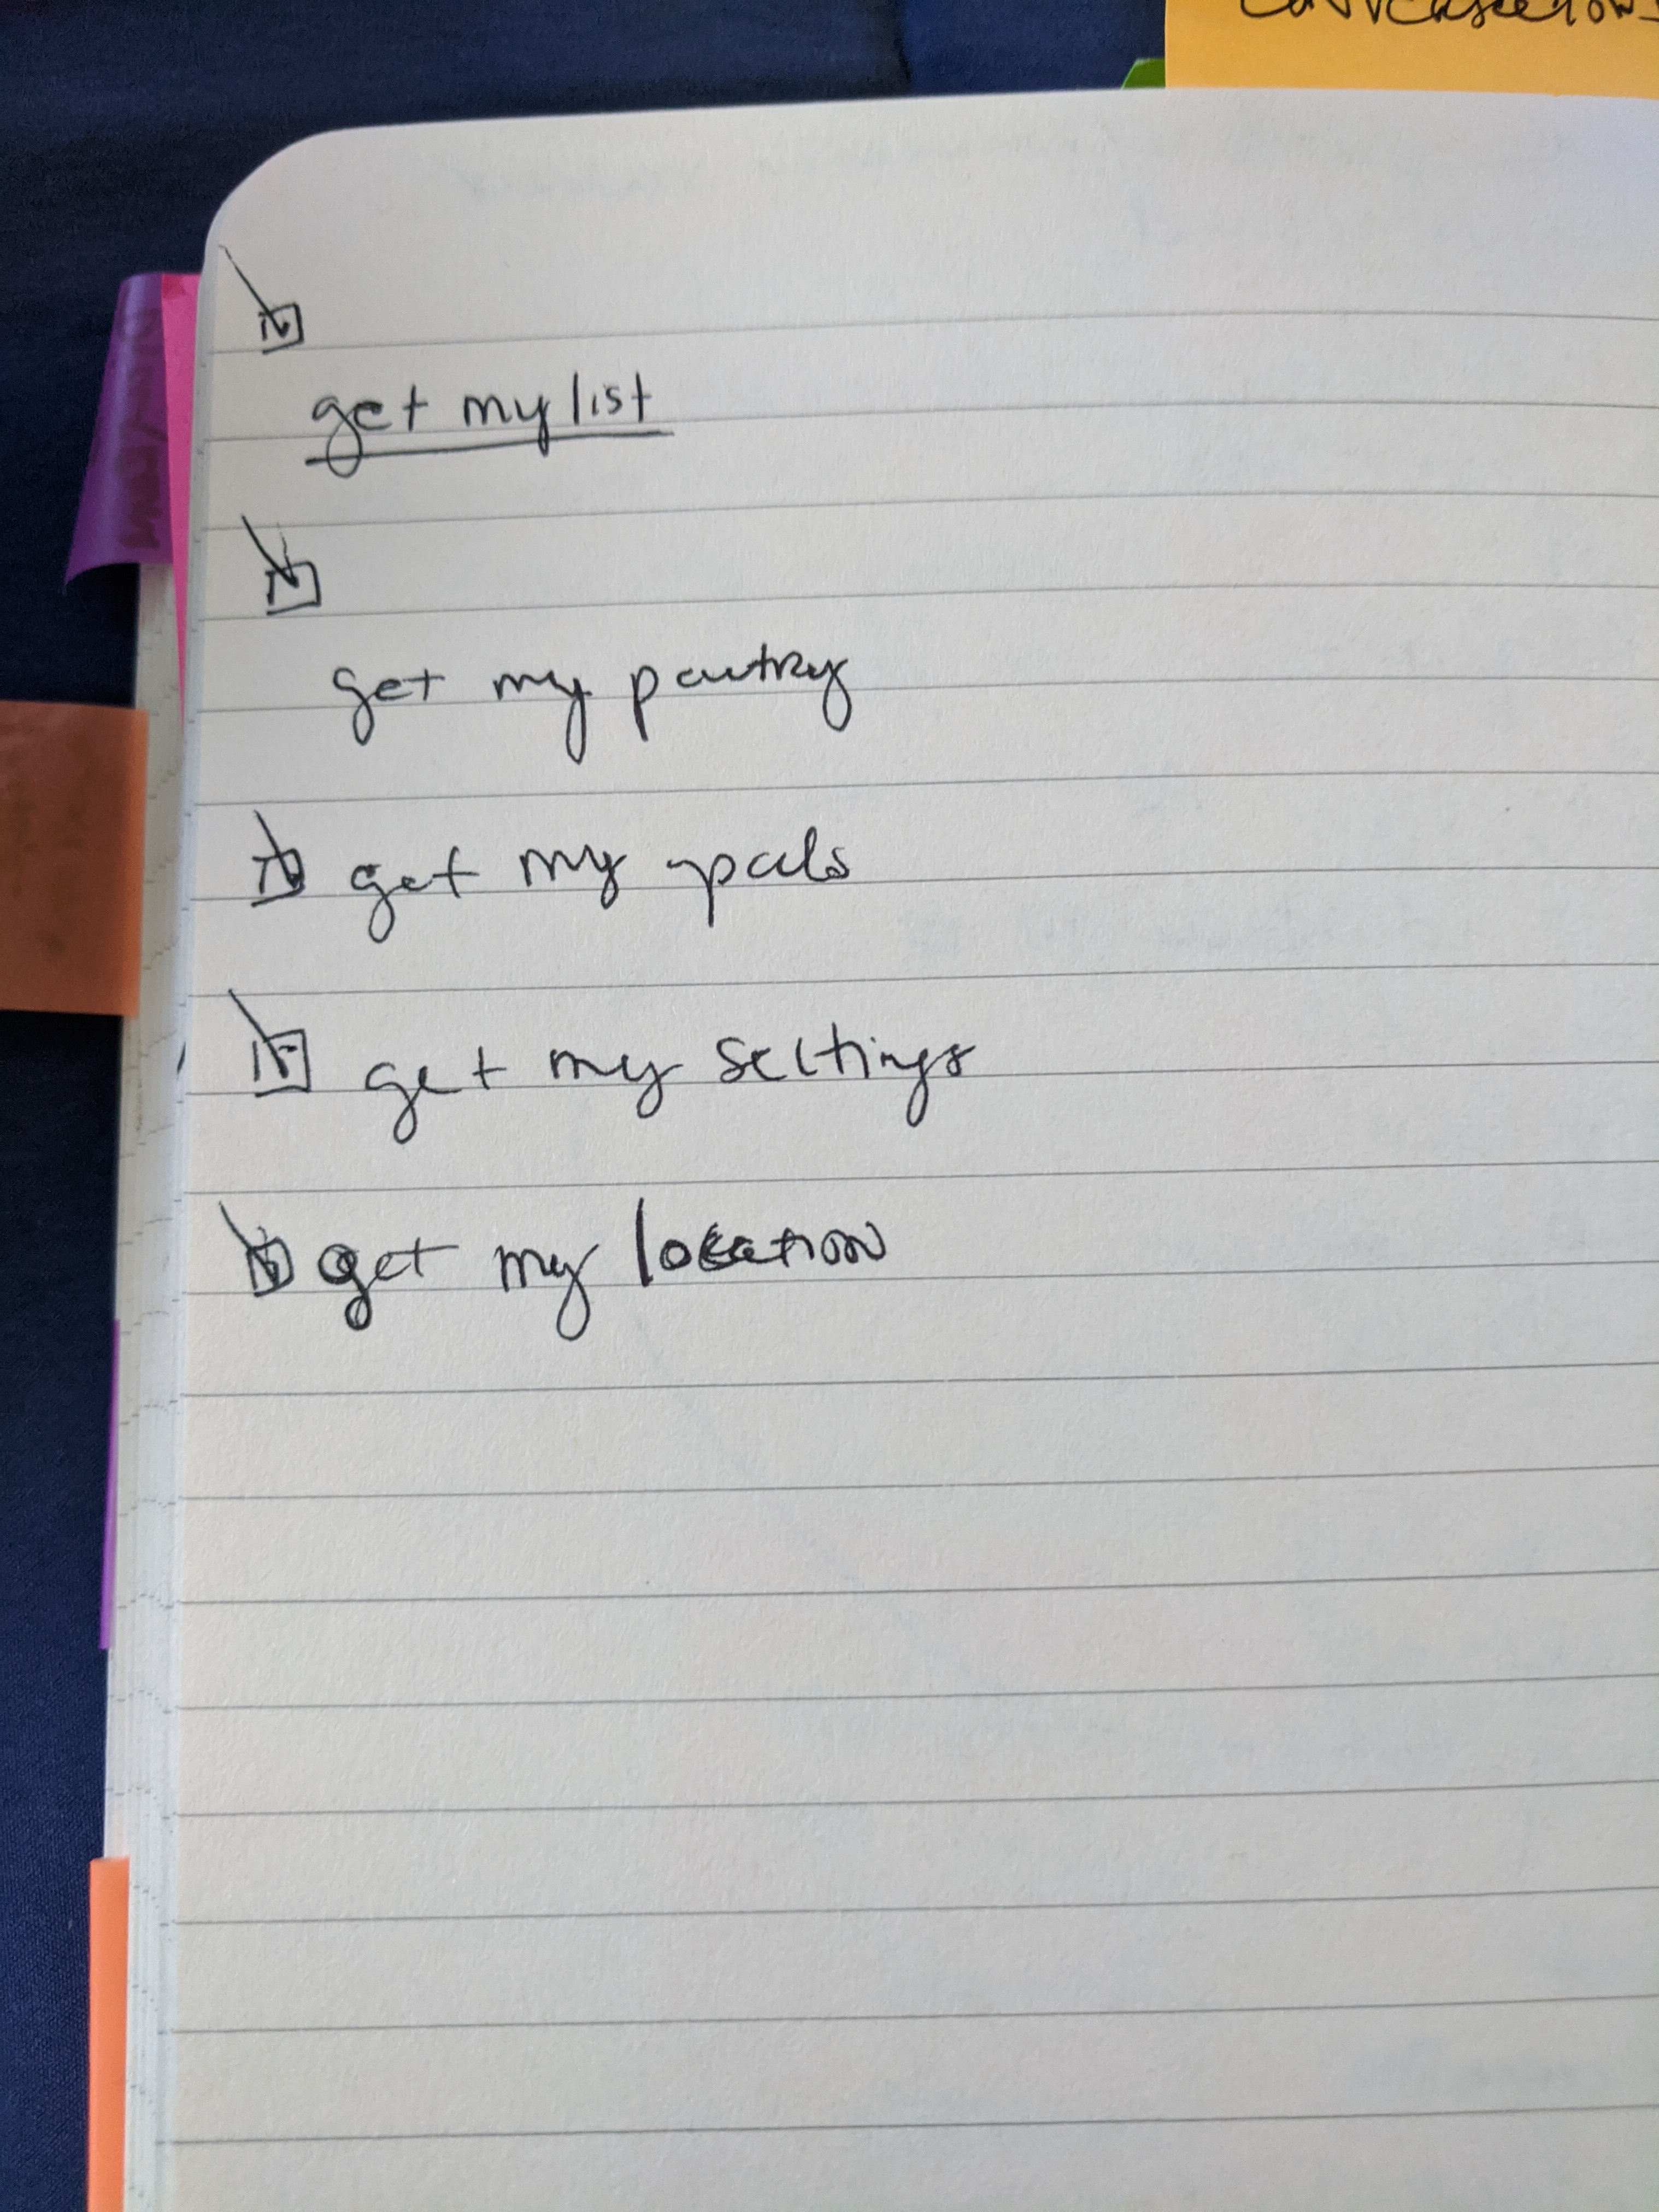 conversations
get my list
get my pantry
get my pals
get my settings
get my location